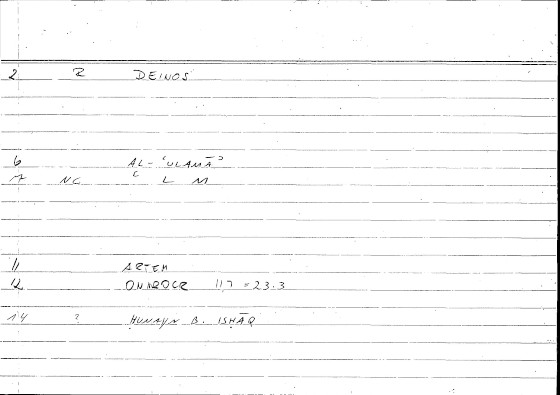 2 R DEINOS
6 AL-ʿULAMĀʾ
7 NC ʿ L M
11 ARTEM
12 ONIROCR 117 = 23.3
14 ? ḤUNAYN B. ISḤĀQ